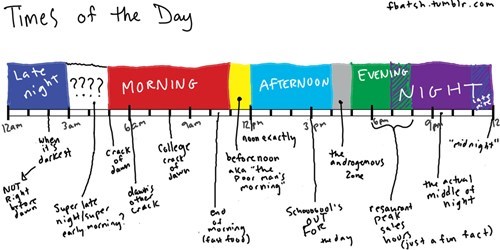 Times of the Day
fbatsh.tumblr.com
Late night
????
MORNING
AFTERNOON
EVENING
NIGHT
late nite
12am
3am
6am
9am
12pm
3pm
6pm
9pm
12
when it's darkest
NOT Right before dawn
Super late night/super early morning?
Crack of dawn
dawn's other crack
College crack of dawn
end of morning (fast food)
noon exactly
before noon aka "the poor man's morning"
Schooool's OUT FOR the day
the androgenous zone
restaurant peak sales hours (just a fun fact)
the actual middle of night
"midnight"